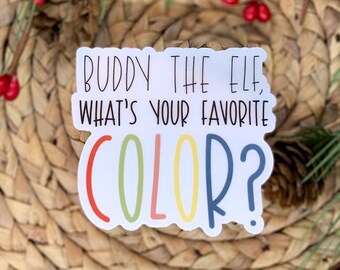 BUDDY THE ELF,
WHAT'S YOUR FAVORITE
COLOR?